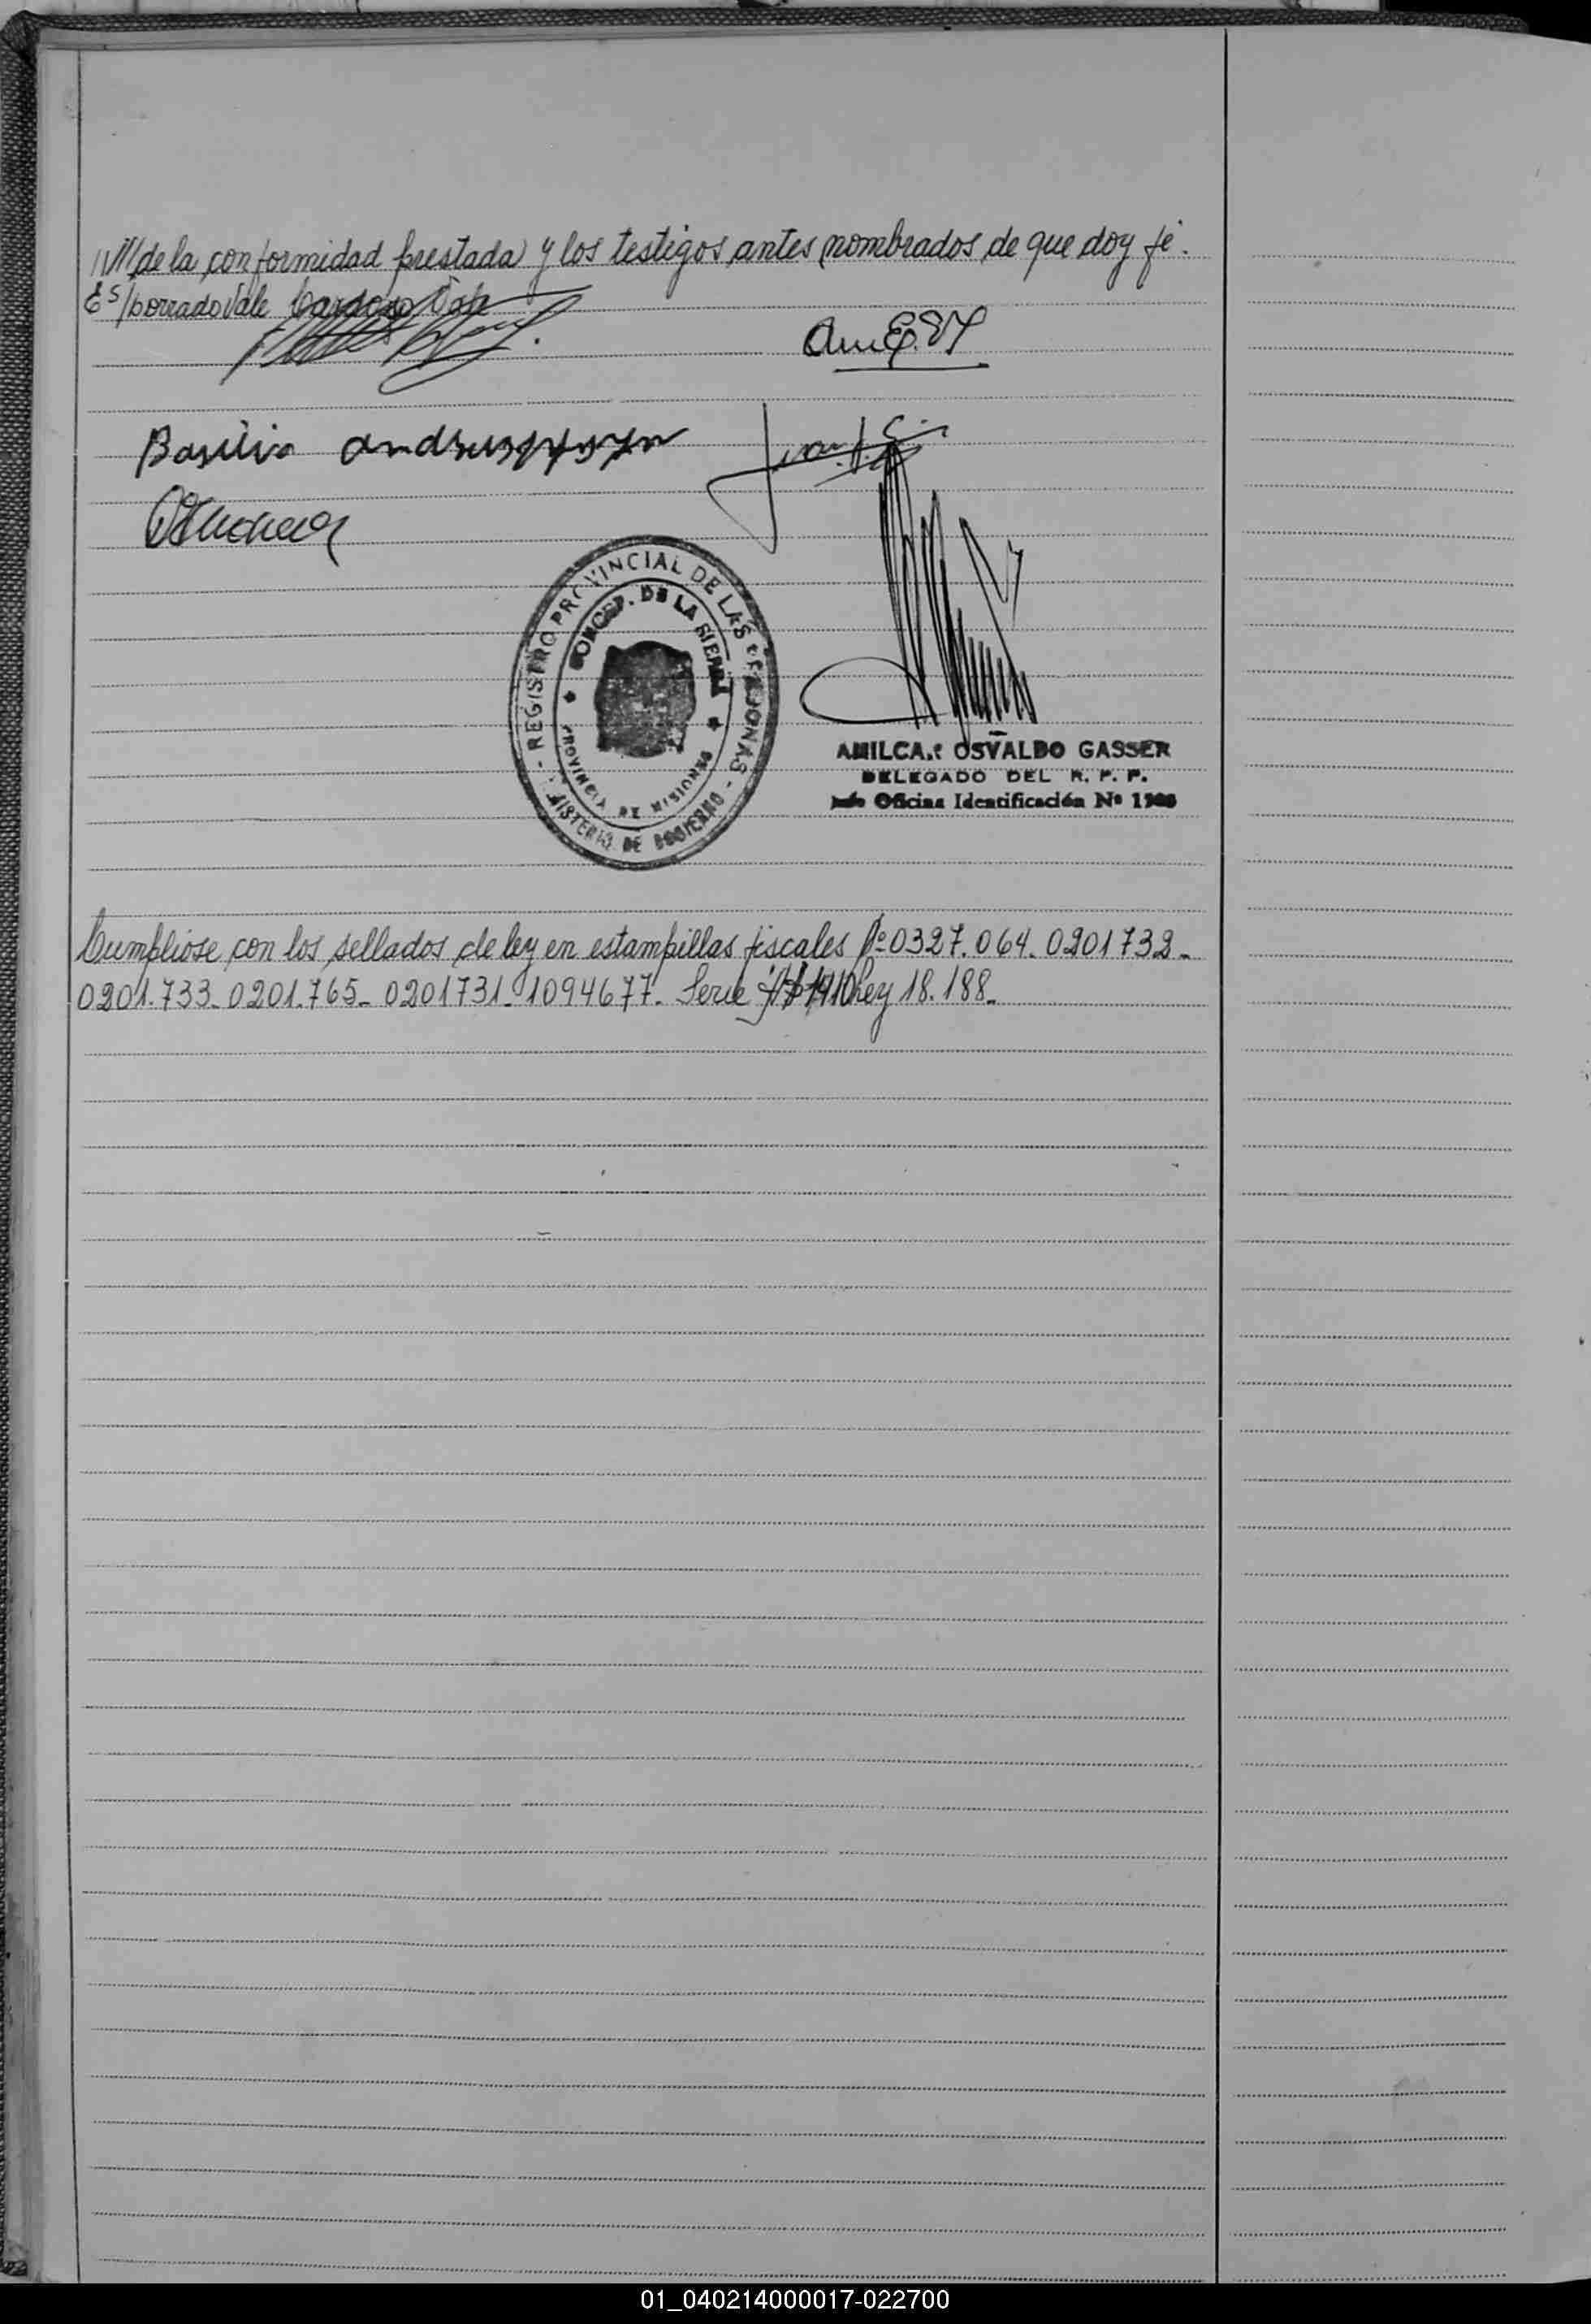 de la conformidad prestada y los testigos antes nombrados de que doy fé.
Es/borrado Vale Cardozo Vale
Basilio
- REGISTRO PROVINCIAL DE LAS PERSONAS -
CONCEP. DE LA SIERRA
PROVINCIA DE MISIONES
MINISTERIO DE GOBIERNO
AMILCAR OSVALDO GASSER
DELEGADO DEL R. P. P.
Oficina Identificación Nº
Cumpliose con los sellados de ley en estampillas fiscales Nº 0327.064. 0201732-
0201.733- 0201.765- 0201731- 1094677- Serie Ley 18.188-
01_040214000017-022700